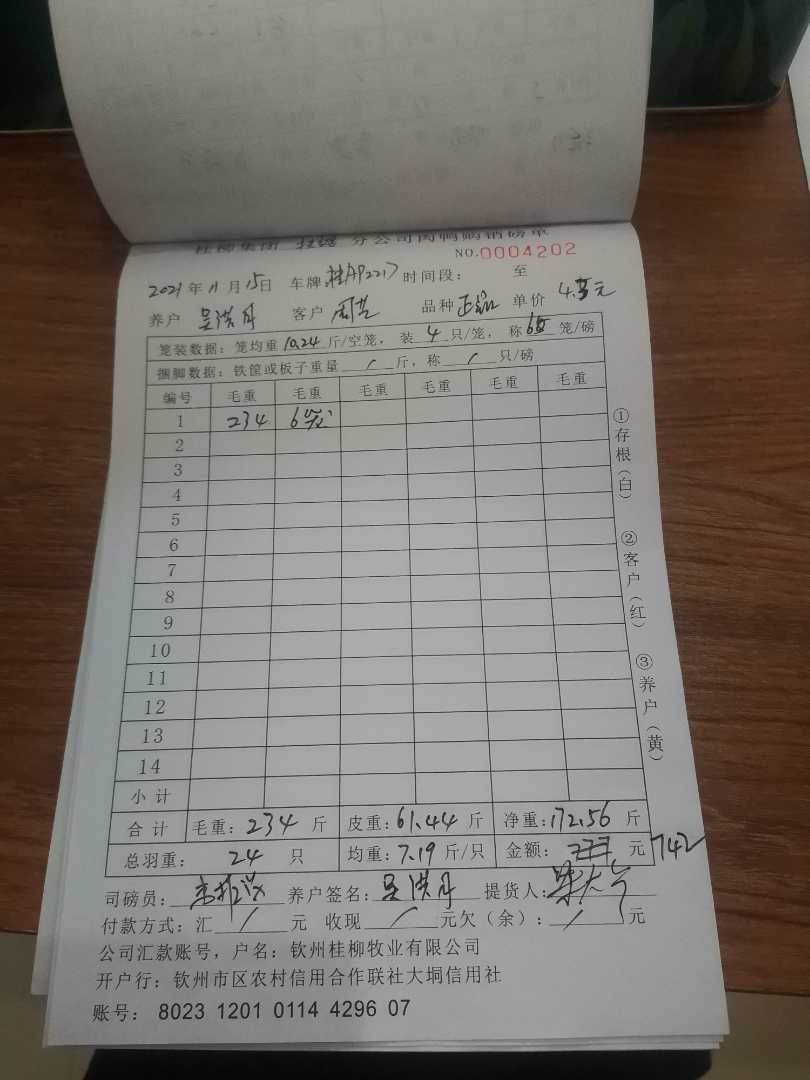 桂柳集团 分公司肉鸭鹅销磅单
NO.0004202
2021年11月15日 车牌桂AP2217 时间段： 至
养户 吴洪月 客户 周芸 品种 单价 元
笼装数据：笼均重10.24斤/空笼，装4只/笼，称6笼/磅
捆脚数据：铁筐或板子重量/斤，称/只/磅
编号 毛重 毛重 毛重 毛重 毛重 毛重
1 234 6
2
3
4
5
6
7
8
9
10
11
12
13
14
小计
合计 毛重：234斤 皮重：61.44斤 净重：172.56斤
总羽重：24只 均重：7.19斤/只 金额： 元 742
司磅员： 养户签名：吴洪月 提货人：
付款方式：汇/元 收现/元欠（余）：/元
公司汇款账号，户名：钦州桂柳牧业有限公司
开户行：钦州市区农村信用合作联社大垌信用社
账号： 8023 1201 0114 4296 07
①存根（白）
②客户（红）
③养户（黄）